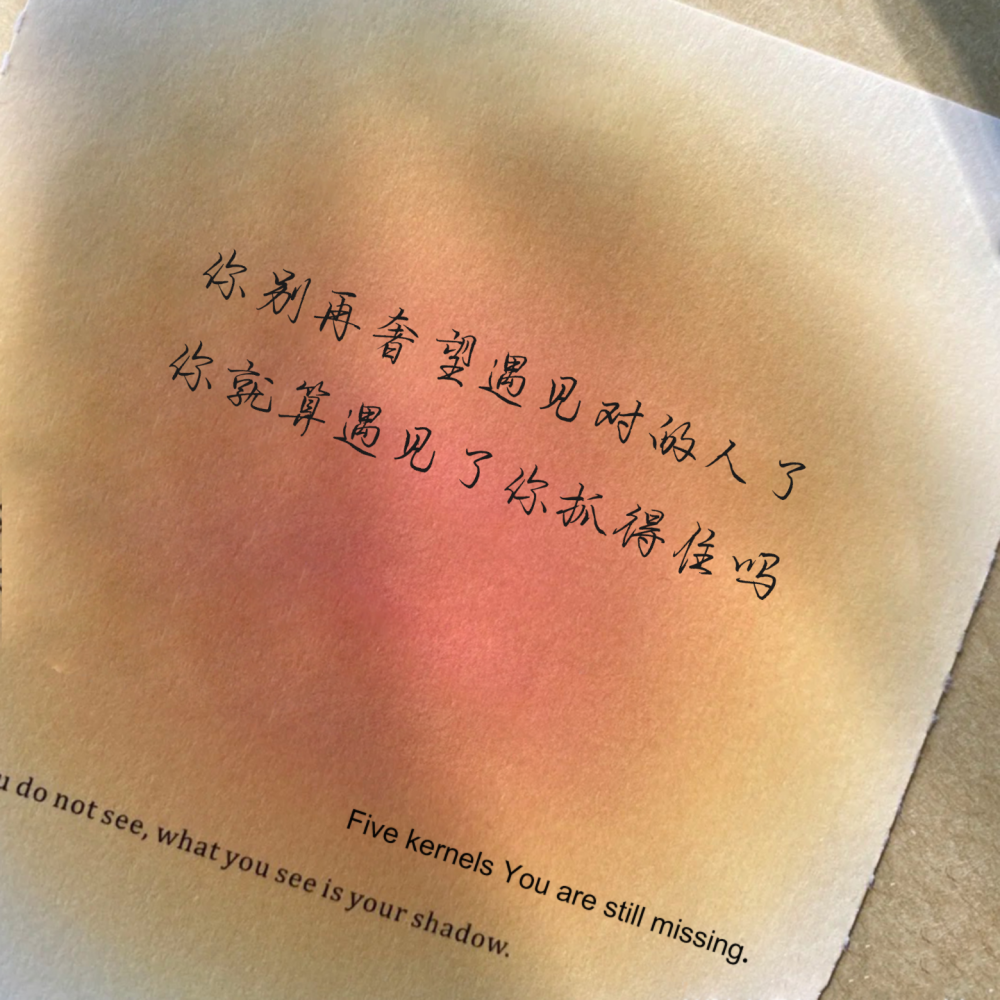 你别再奢望遇见对的人了
你就算遇见了你抓得住吗
Five kernels You are still missing.
do not see, what you see is your shadow.